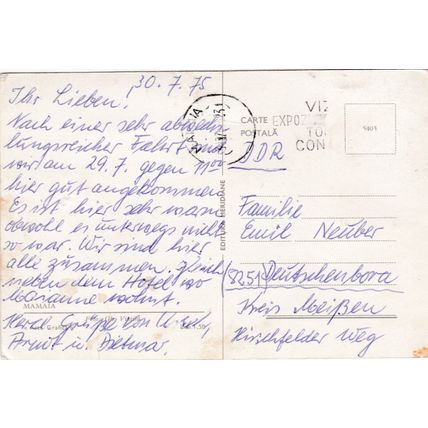 30.7.75
Ihr Lieben.
Nach einer sehr abwechs-
lungsreicher Fahrt sind
wir am 29.7. gegen 11⁰⁰
hier gut angekommen.
Es ist hier sehr warm
obwohl es unterwegs nicht
so war. Wir sind hier
alle zusammen. Gleich
neben dem Hotel wo
Marianne wohnt.
Herzl. Grüße von
Arndt u. Dietmar.
MAMAIA
EDITURA MERIDIANE
MAMAIA
CARTE
POSTALĂ
VIZ
EXPOZ
CON
5405
DDR
Familie
Emil Neuber
(8251) Deutschenbora
Kreis Meißen
Hirschfelder Weg